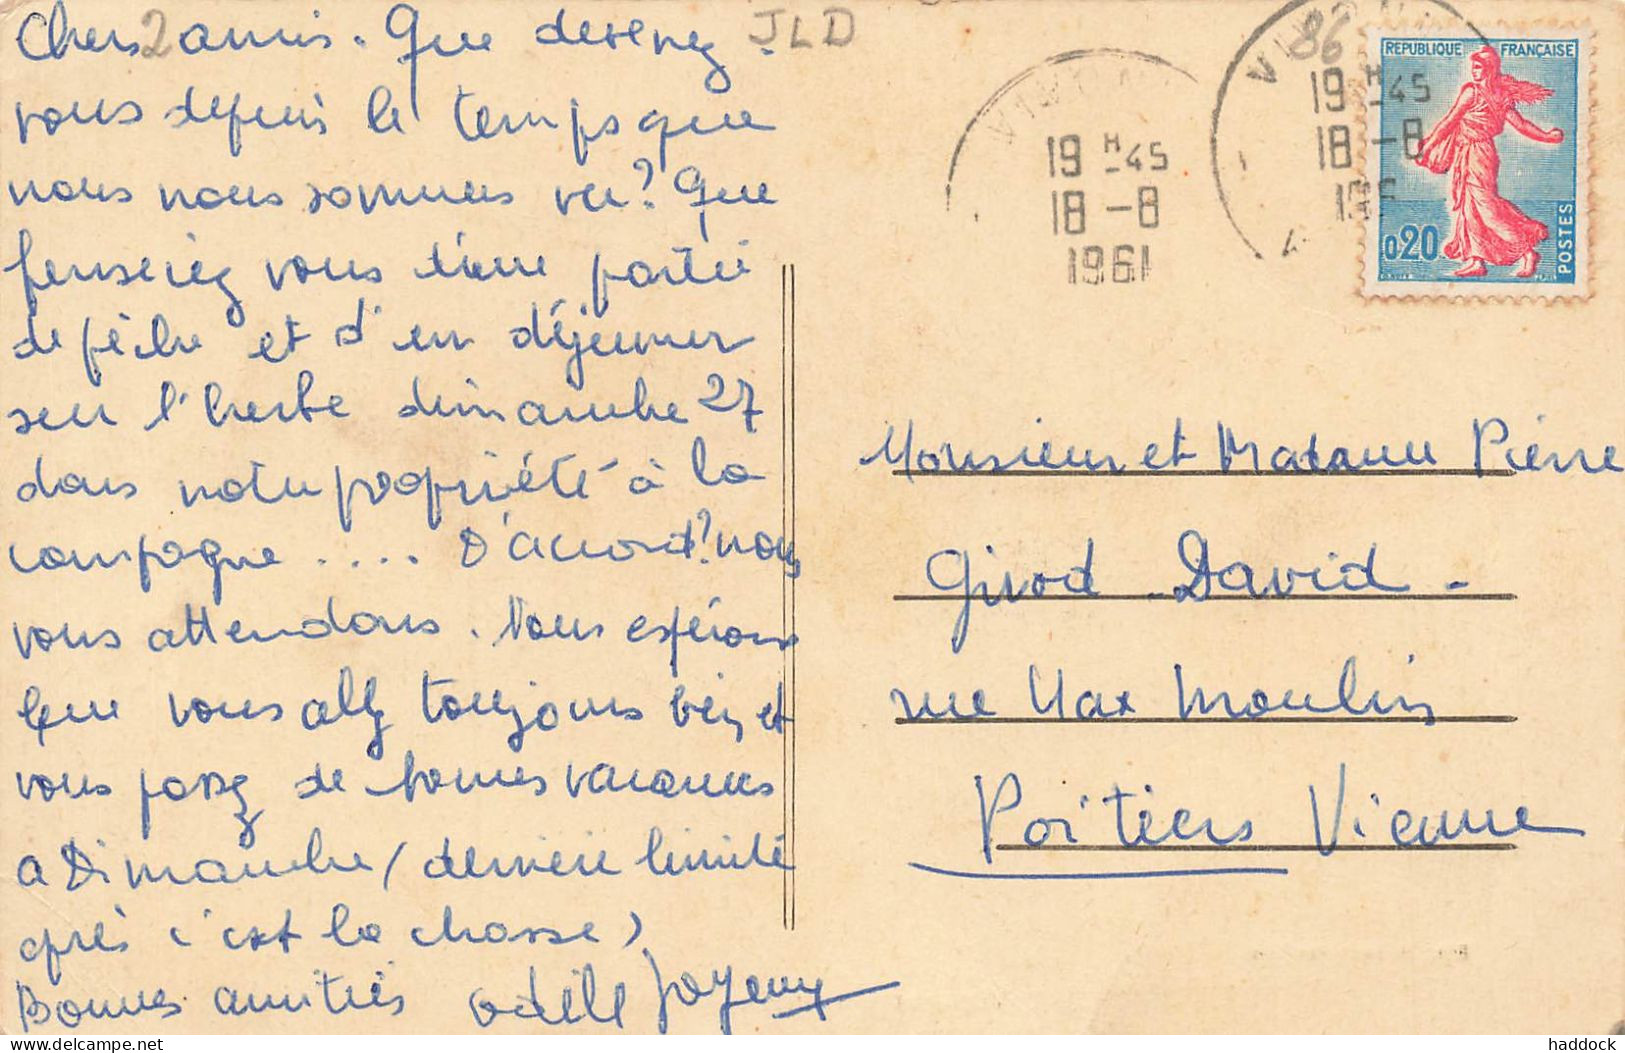 Chers amis. Que devenez
vous depuis le temps que
nous nous sommes vu? Que
penseriez vous d'une partie
de pêche et d'en déjeuner
sur l'herbe dimanche 27
dans notre propriété à la
campagne .... D'accord? nous
vous attendons. Nous espérons
que vous allez toujours bien et
vous passez de bonnes vacances
a Dimanche (dernière limite
après c'est la chasse)
Bonnes amitiés Odile
JLD
2
86
VIVONNE
19 H -45
18 -8
1961
VIVONNE
19 H -45
18 -8
REPUBLIQUE FRANÇAISE
0,20
POSTES
Monsieur et Madame Pierre
Girod - David -
rue Max Moulin
Poitiers Vienne
haddock
delcampe.net